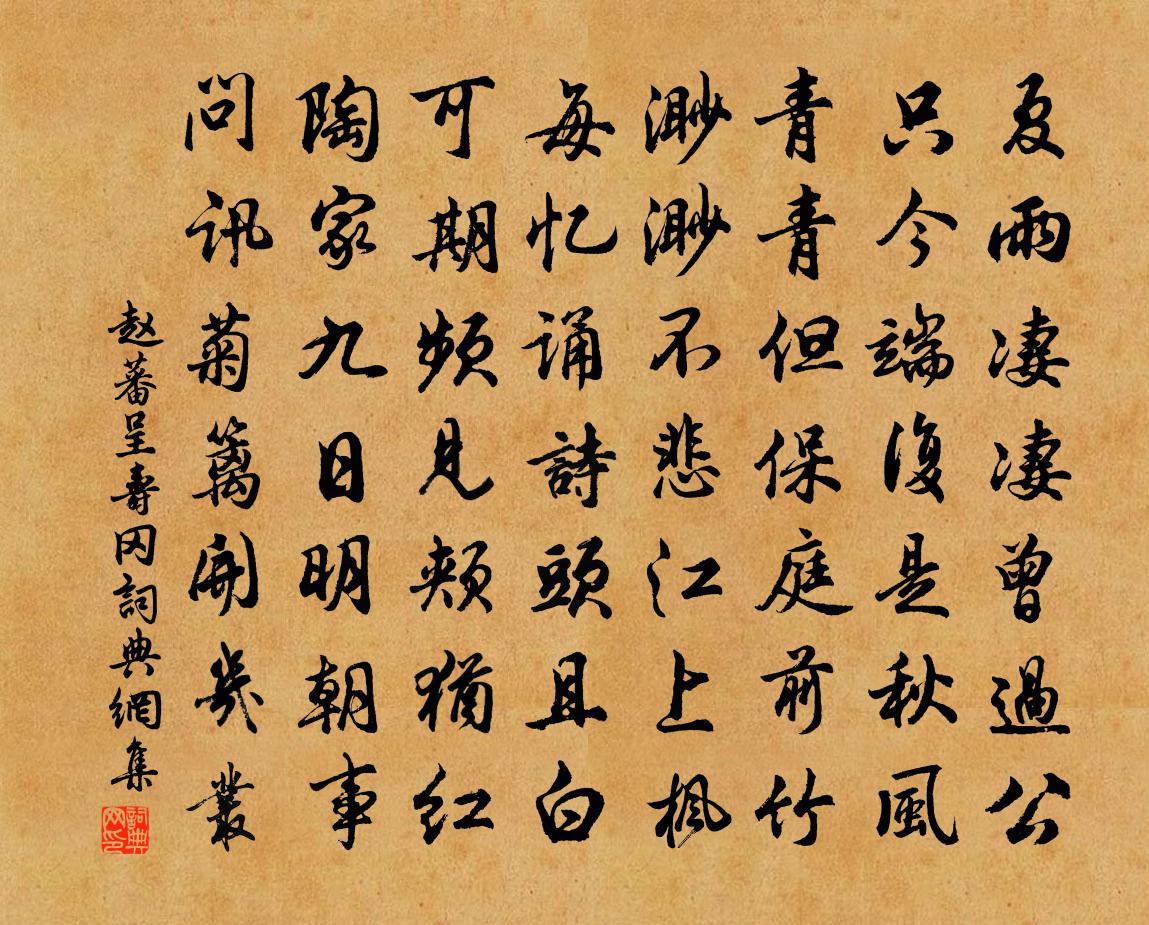 夏雨淒淒曾過公
只今端復是秋風
青青但保庭前竹
渺渺不悲江上楓
每忆誦詩頭且白
可期頻見頰猶紅
陶家九日明朝事
問訊菊籬開幾叢
赵蕃呈壽冈詞典網集
詞典网印